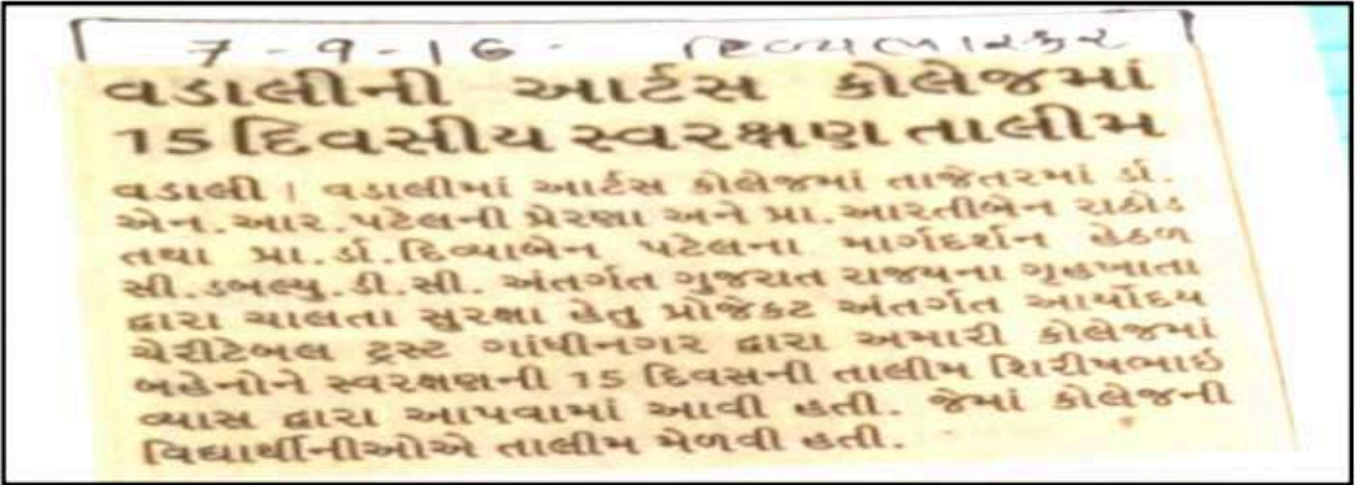 7-9-16. દિવ્યભાસ્કર
વડાલીની આર્ટસ કોલેજમાં
15 દિવસીય સ્વરક્ષણ તાલીમ
વડાલી | વડાલીમાં આર્ટસ કોલેજમાં તાજેતરમાં ડૉ.
એન.આર.પટેલની પ્રેરણા અને પ્રા.આરતીબેન રાઠોડ
તથા પ્રા.ડૉ.દિવ્યાબેન પટેલના માર્ગદર્શન હેઠળ
સી.ડબલ્યુ.ડી.સી. અંતર્ગત ગુજરાત રાજ્યના ગૃહખાતા
દ્વારા ચાલતા સુરક્ષા હેતુ પ્રોજેક્ટ અંતર્ગત આર્યોદય
ચેરીટેબલ ટ્રસ્ટ ગાંધીનગર દ્વારા અમારી કોલેજમાં
બહેનોને સ્વરક્ષણની 15 દિવસની તાલીમ શિરીષભાઈ
વ્યાસ દ્વારા આપવામાં આવી હતી. જેમાં કોલેજની
વિદ્યાર્થીનીઓએ તાલીમ મેળવી હતી.